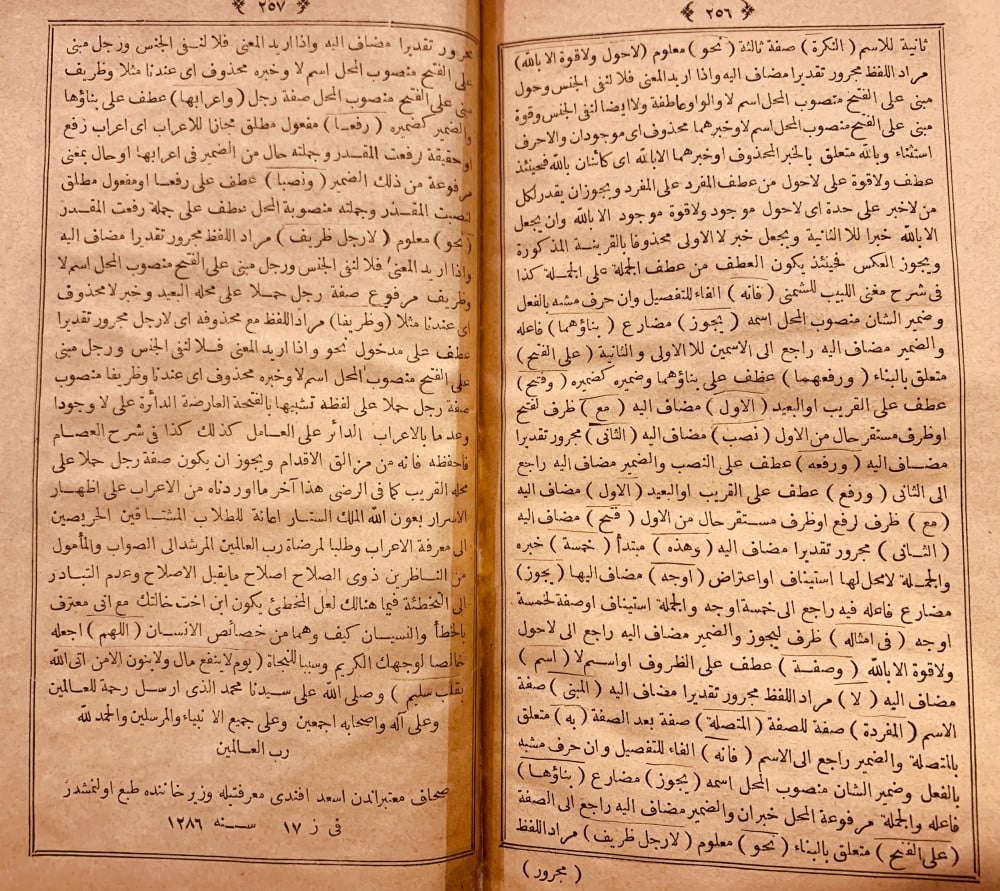 ﴿ ٢٥٦ ﴾
ثانية للاسم ( النكرة ) صفة ثالثة ( نحو ) معلوم ( لاحول ولاقوة الا بالله )
مراد اللفظ مجرور تقديرا مضاف اليه واذا اريد المعنى فلا لنفى الجنس وحول
مبنى على الفتح منصوب المحل اسم لا والواو عاطفة ولا ايضا لنفى الجنس وقوة
مبنى على الفتح منصوب المحل اسم لا وخبرهما محذوف اى موجودان والاحرف
استثناء وبالله متعلق بالخبر المحذوف اوخبرهما الا بالله اى كائنان بالله فحينئذ
عطف ولاقوة على لاحول من عطف المفرد على المفرد ويجوز ان يقدر لكل
من لاخبر على حدة اى لاحول موجود ولاقوة موجود الا بالله وان يجعل
الا بالله خبرا للا الثانية ويجعل خبر لا الاولى محذوفا بالقرينة المذكورة
ويجوز العكس فحينئذ يكون العطف من عطف الجملة على الجملة كذا
فى شرح مغنى اللبيب للشمنى ( فانه ) الفاء للتفصيل وان حرف مشبه بالفعل
وضمير الشان منصوب المحل اسمه ( يجوز ) مضارع ( بناؤهما ) فاعله
والضمير مضاف اليه راجع الى الاسمين للا الاولى والثانية ( على الفتح )
متعلق بالبناء ( ورفعهما ) عطف على بناؤهما وضميره كضميره ( وفتح )
عطف على القريب او البعيد ( الاول ) مضاف اليه ( مع ) ظرف لفتح
او ظرف مستقر حال من الاول ( نصب ) مضاف اليه ( الثانى ) مجرور تقديرا
مضاف اليه ( ورفعه ) عطف على النصب والضمير مضاف اليه راجع
الى الثانى ( ورفع ) عطف على القريب او البعيد ( الاول ) مضاف اليه
( مع ) ظرف لرفع او ظرف مستقر حال من الاول ( فتح ) مضاف اليه
( الثانى ) مجرور تقديرا مضاف اليه ( وهذه ) مبتدأ ( خمسة ) خبره
والجملة لامحل لها استيناف او اعتراض ( اوجه ) مضاف اليها ( يجوز )
مضارع فاعله فيه راجع الى خمسة اوجه والجملة استيناف اوصفة لخمسة
اوجه ( فى امثاله ) ظرف ليجوز والضمير مضاف اليه راجع الى لاحول
ولاقوة الا بالله ( وصفة ) عطف على الظروف او اسم لا ( اسم )
مضاف اليه ( لا ) مراد اللفظ مجرور تقديرا مضاف اليه ( المبنى ) صفة
الاسم ( المفردة ) صفة للصفة ( المتصلة ) صفة بعد الصفة ( به ) متعلق
بالمتصلة والضمير راجع الى الاسم ( فانه ) الفاء للتفصيل وان حرف مشبه
بالفعل وضمير الشان منصوب المحل اسمه ( يجوز ) مضارع ( بناؤها )
فاعله والجملة مرفوعة المحل خبران والضمير مضاف اليه راجع الى الصفة
( على الفتح ) متعلق بالبناء ( نحو ) معلوم ( لارجل ظريف ) مراد اللفظ
( مجرور )
﴿ ٢٥٧ ﴾
مجرور تقديرا مضاف اليه واذا اريد المعنى فلا لنفى الجنس ورجل مبنى
على الفتح منصوب المحل اسم لا وخبره محذوف اى عندنا مثلا وظريف
مبنى على الفتح منصوب المحل صفة رجل ( واعرابها ) عطف على بناؤها
والضمير كضميره ( رفعا ) مفعول مطلق مجازا للاعراب اى اعراب رفع
اوحقيقة رفعت المقدر وجملته حال من الضمير فى اعرابها اوحال بمعنى
مرفوعة من ذلك الضمير ( ونصبا ) عطف على رفعا اومفعول مطلق
لنصبت المقدر وجملته منصوبة المحل عطف على جملة رفعت المقدر
( نحو ) معلوم ( لارجل ظريف ) مراد اللفظ مجرور تقديرا مضاف اليه
واذا اريد المعنى فلا لنفى الجنس ورجل مبنى على الفتح منصوب المحل اسم لا
وظريف مرفوع صفة رجل حملا على محله البعيد وخبر لا محذوف
اى عندنا مثلا ( وظريفا ) مراد اللفظ مع محذوفه اى لارجل مجرور تقديرا
عطف على مدخول نحو واذا اريد المعنى فلا لنفى الجنس ورجل مبنى
على الفتح منصوب المحل اسم لا وخبره محذوف اى عندنا وظريفا منصوب
صفة رجل حملا على لفظه تشبيها بالفتحة العارضة الدائرة على لا وجودا
وعدما بالاعراب الدائر على العامل كذلك كذا فى شرح العصام
فاحفظه فانه من مزالق الاقدام ويجوز ان يكون صفة رجل حملا على
محله القريب كما فى الرضى هذا آخر ما اوردناه من الاعراب على اظهار
الاسرار بعون الله الملك الستار اعانة للطلاب المشتاقين الحريصين
الى معرفة الاعراب وطلبا لمرضاة رب العالمين المرشد الى الصواب والمأمول
من الناظرين ذوى الصلاح اصلاح مايقبل الاصلاح وعدم التبادر
الى التخطئة فيما هنالك لعل المخطئ يكون ابن اخت خالتك مع انى معترف
بالخطأ والنسيان كيف وهما من خصائص الانسان ( اللهم ) اجعله
خالصا لوجهك الكريم وسببا للنجاة ( يوم لاينفع مال ولابنون الا من اتى الله
بقلب سليم ) وصلى الله على سيدنا محمد الذى ارسل رحمة للعالمين
وعلى آله واصحابه اجمعين وعلى جميع الانبياء والمرسلين والحمد لله
رب العالمين
صحاف معتبراندن اسعد افندى معرفتيله وزير خاننده طبع اولنمشدر
فى ز ١٧ سنه ١٢٨٦